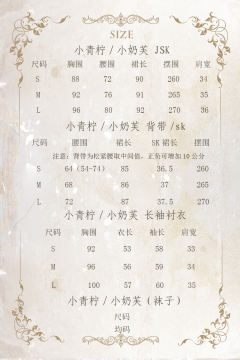 SIZE
小青柠/小奶芙 JSK
尺码 胸围 腰围 裙长 摆围 肩宽
S 88 72 90 260 34
M 92 76 91 265 35
L 96 80 92 270 36
小青柠/小奶芙 背带/sk
尺码 腰围 裙长 SK 裙长 摆围
注意：背带为松紧腰取中间值，正负可增加 10 公分
S 64 (54-74) 85 36.5 260
M 68 86 37 265
L 72 87 37.5 270
小青柠/小奶芙 长袖衬衣
尺码 胸围 衣长 袖长 肩宽
S 92 53 58 33
M 96 56 59 34
L 100 57 60 35
小青柠/小奶芙（袜子）
尺码
均码